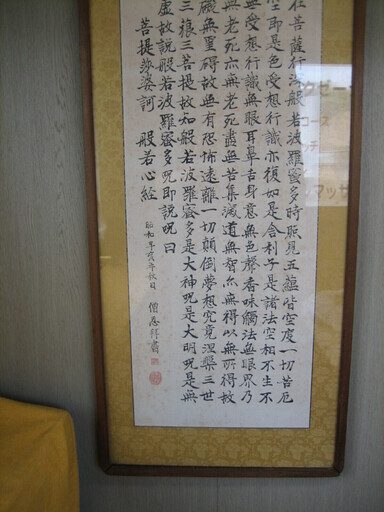 在菩薩行深般若波羅蜜多時照見五蘊皆空度一切苦厄
空即是色受想行識亦復如是舍利子是諸法空相不生不
無受想行識無眼耳鼻舌身意無色聲香味觸法無眼界乃
無老死亦無老死盡無苦集滅道無智亦無得以無所得故
礙無罣礙故無有恐怖遠離一切顛倒夢想究竟涅槃三世
三藐三菩提故知般若波羅蜜多是大神呪是大明呪是無
虛故說般若波羅蜜多呪即說呪曰
菩提莎婆訶 般若心経
昭和 年 秋日 僧 書
コース
マッサ